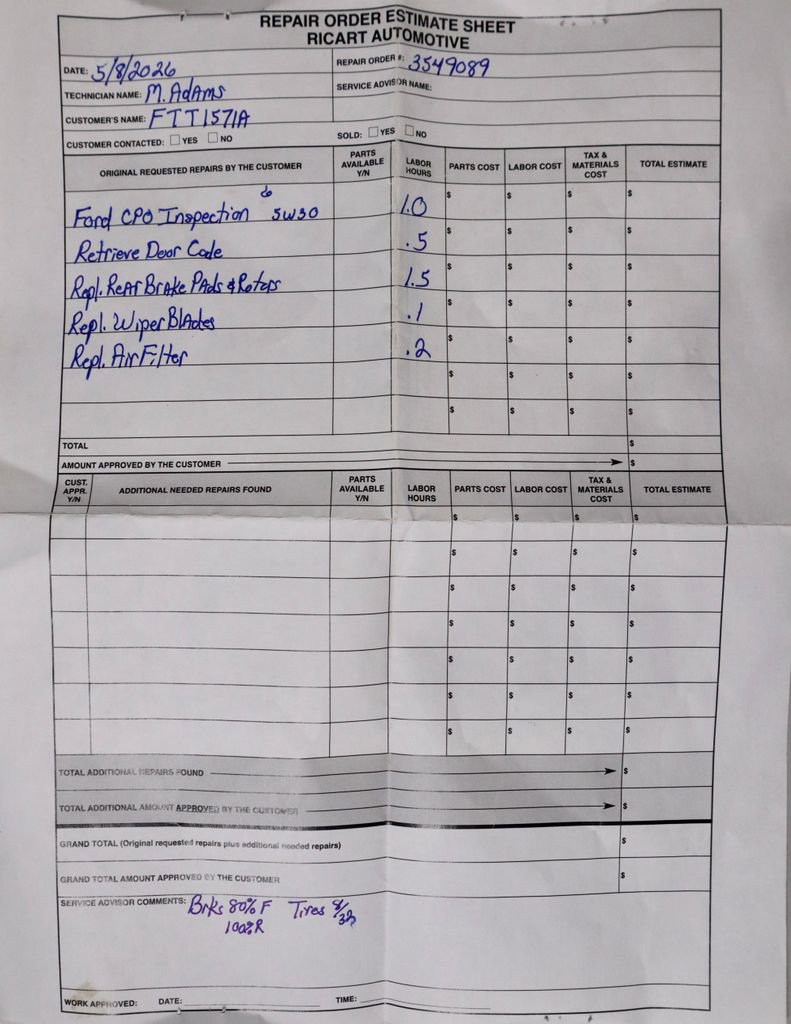 REPAIR ORDER ESTIMATE SHEET
RICART AUTOMOTIVE
DATE: 5/8/2026
REPAIR ORDER #: 3549089
TECHNICIAN NAME: M. Adams
SERVICE ADVISOR NAME:
CUSTOMER'S NAME: FTT1571A
CUSTOMER CONTACTED: YES NO
SOLD: YES NO
ORIGINAL REQUESTED REPAIRS BY THE CUSTOMER PARTS AVAILABLE Y/N LABOR HOURS PARTS COST LABOR COST TAX & MATERIALS COST TOTAL ESTIMATE
6
Ford CPO Inspection 5W30 1.0 $ $ $ $
Retrieve Door Code .5 $ $ $ $
Repl. Rear Brake Pads & Rotors 1.5 $ $ $ $
Repl. Wiper Blades .1 $ $ $ $
Repl. Air Filter .2 $ $ $ $
$ $ $ $
$ $ $ $
TOTAL $
AMOUNT APPROVED BY THE CUSTOMER $
CUST. APPR. Y/N ADDITIONAL NEEDED REPAIRS FOUND PARTS AVAILABLE Y/N LABOR HOURS PARTS COST LABOR COST TAX & MATERIALS COST TOTAL ESTIMATE
$ $ $ $
$ $ $ $
$ $ $ $
$ $ $ $
$ $ $ $
$ $ $ $
$ $ $ $
TOTAL ADDITIONAL REPAIRS FOUND $
TOTAL ADDITIONAL AMOUNT APPROVED BY THE CUSTOMER $
GRAND TOTAL (Original requested repairs plus additional needed repairs) $
GRAND TOTAL AMOUNT APPROVED BY THE CUSTOMER $
SERVICE ADVISOR COMMENTS: Brks 80% F Tires 8/32
100% R
WORK APPROVED: DATE: TIME: